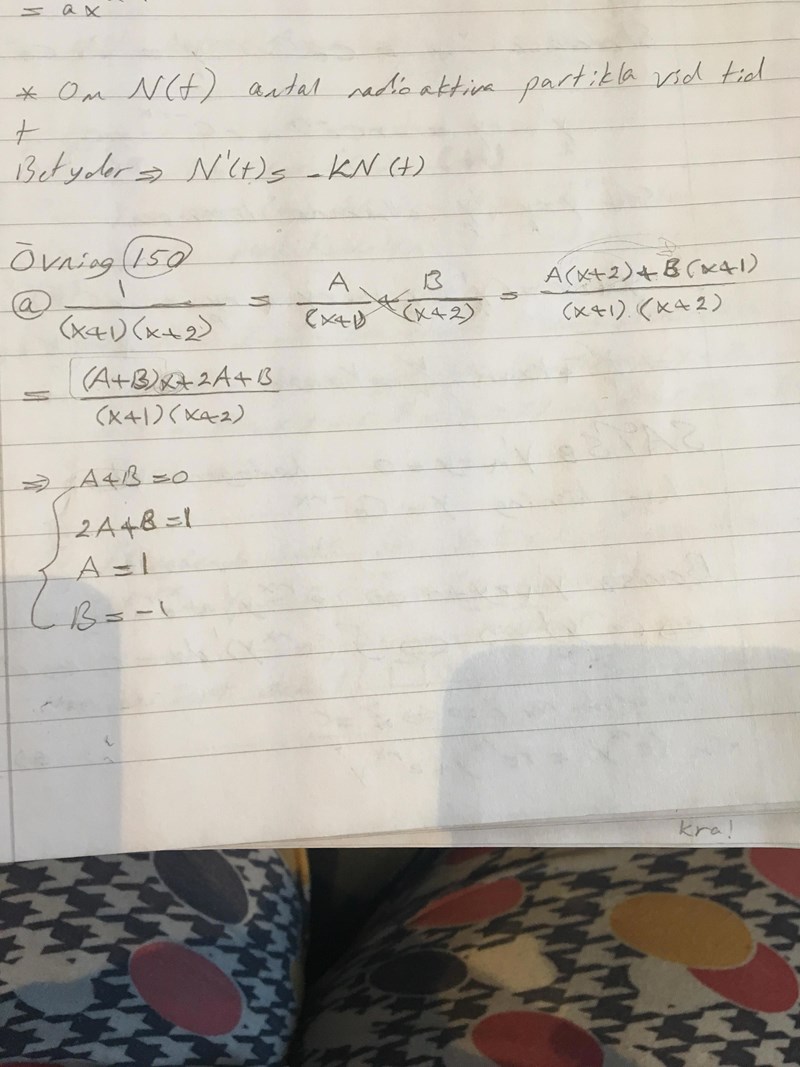 = ax
* Om N(t) antal radioaktiva partikla vid tid
t
Betyder ⇒ N'(t) = -KN(t)
Övning 150
a) 1/((x+1)(x+2)) = A/(x+1) + B/(x+2) = (A(x+2)+B(x+1))/((x+1)(x+2))
= ((A+B)x+2A+B)/((x+1)(x+2))
⇒ { A+B=0
2A+B=1
A=1
B=-1
kra!